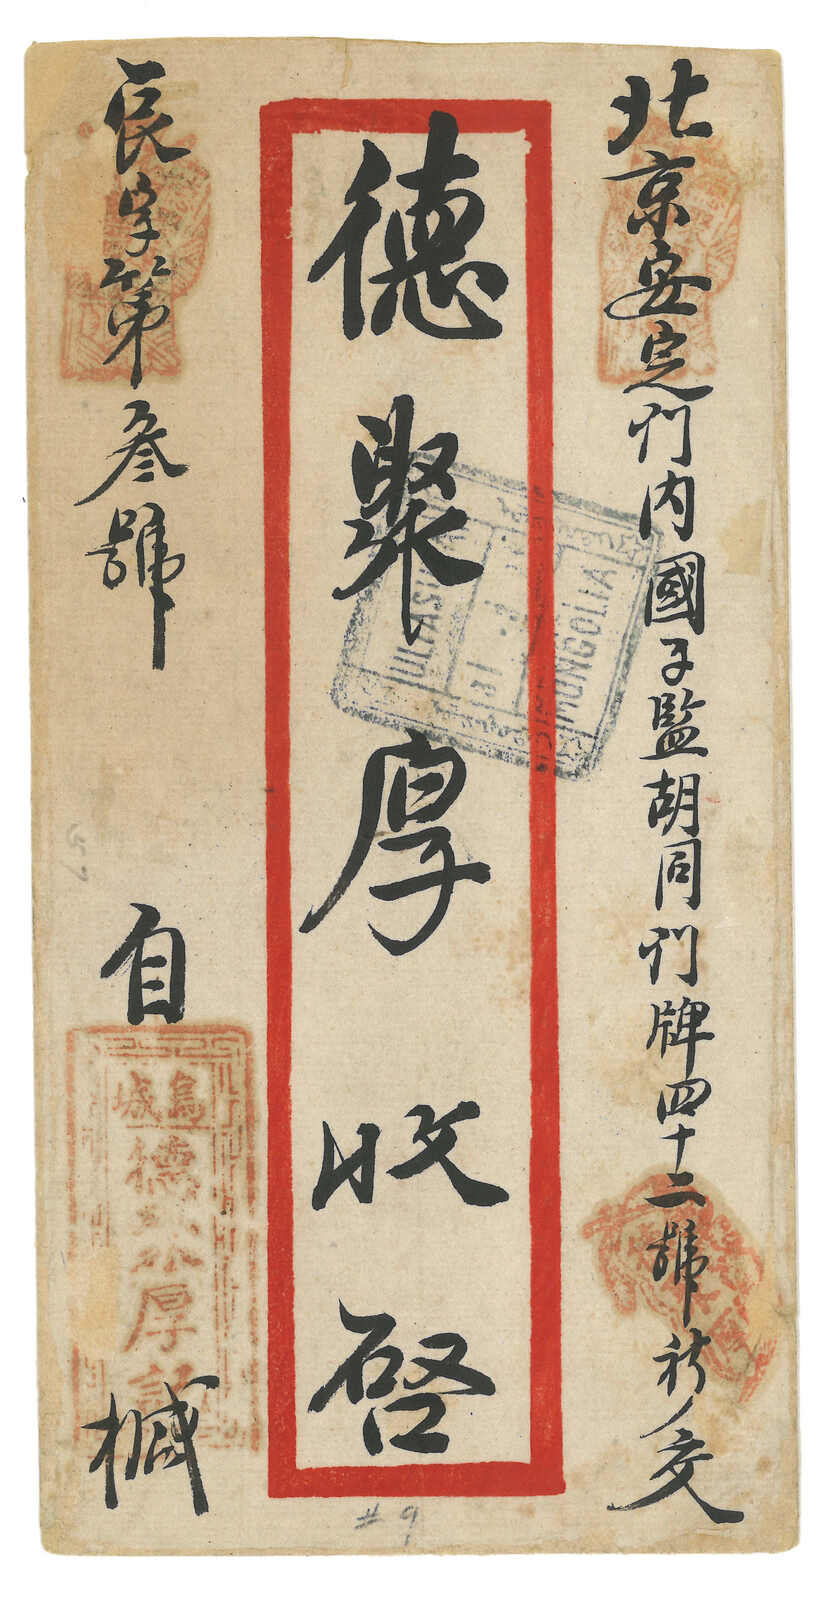 北京安定门内國子監胡同门牌四十二號祈交
德聚厚收啓
長字第叁號
自
緘
烏城
德聚厚記
ULIASU
MONGOLIA
#9